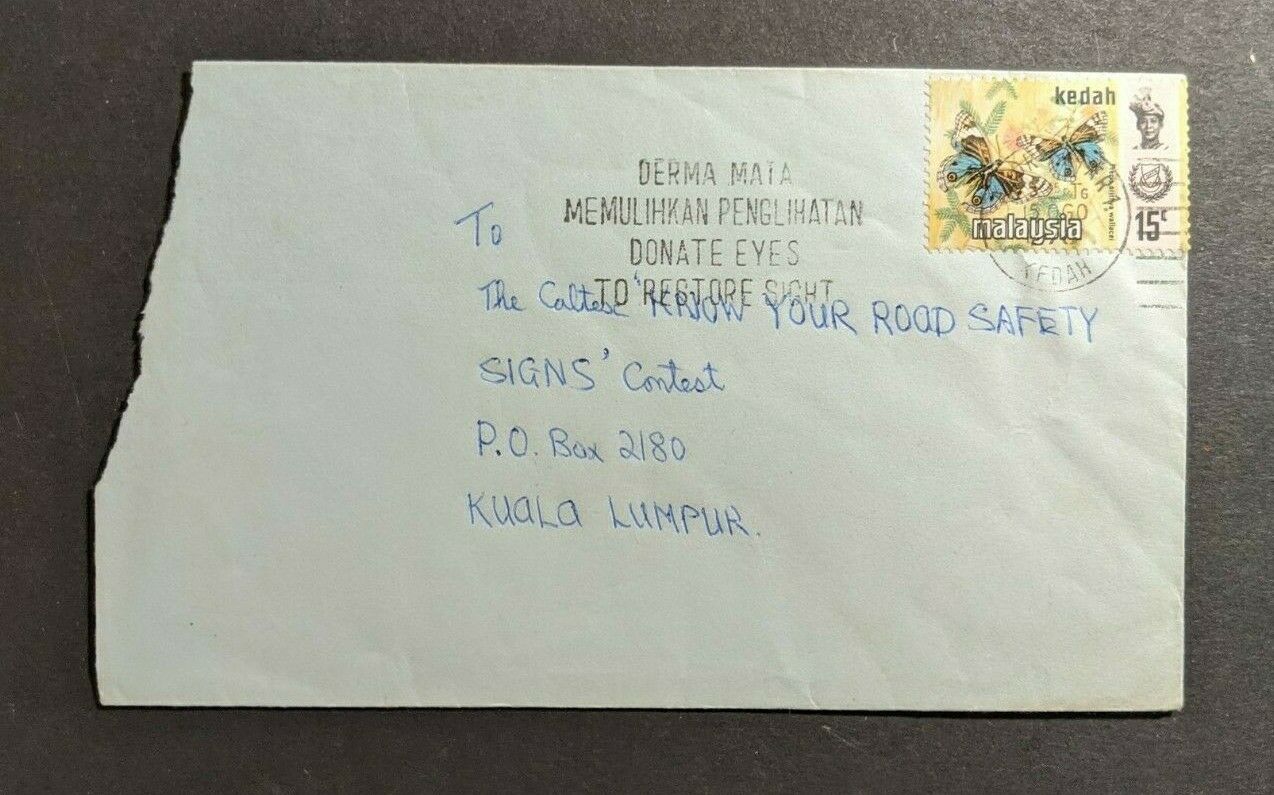 kedah
malaysia
15c
KEDAH
DERMA MATA
MEMULIHKAN PENGLIHATAN
DONATE EYES
TO RESTORE SIGHT
To
The Caltex 'KNOW YOUR ROAD SAFETY
SIGNS' Contest
P.O. Box 2180
KUALA LUMPUR.